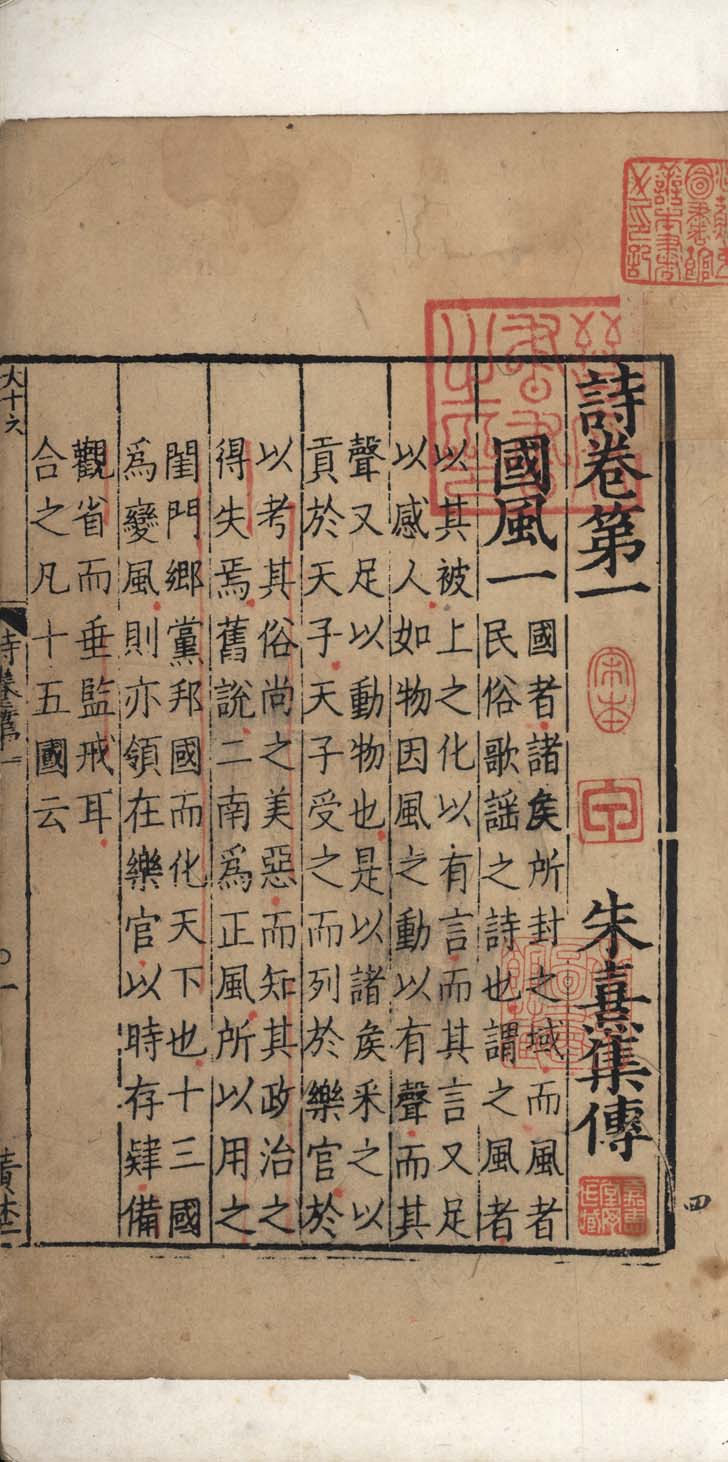 詩卷第一
朱熹集傳
國風一
國者諸矦所封之域而風者
民俗歌謡之詩也謂之風者
以其被上之化以有言而其言又足
以感人如物因風之動以有聲而其
聲又足以動物也是以諸矦采之以
貢於天子天子受之而列於樂官於
以考其俗尚之美惡而知其政治之
得失焉舊說二南爲正風所以用之
閨門鄉黨邦國而化天下也十三國
爲變風則亦領在樂官以時存肄備
觀省而垂監戒耳
合之凡十五國云
大十六
詩卷第一
宋本
四